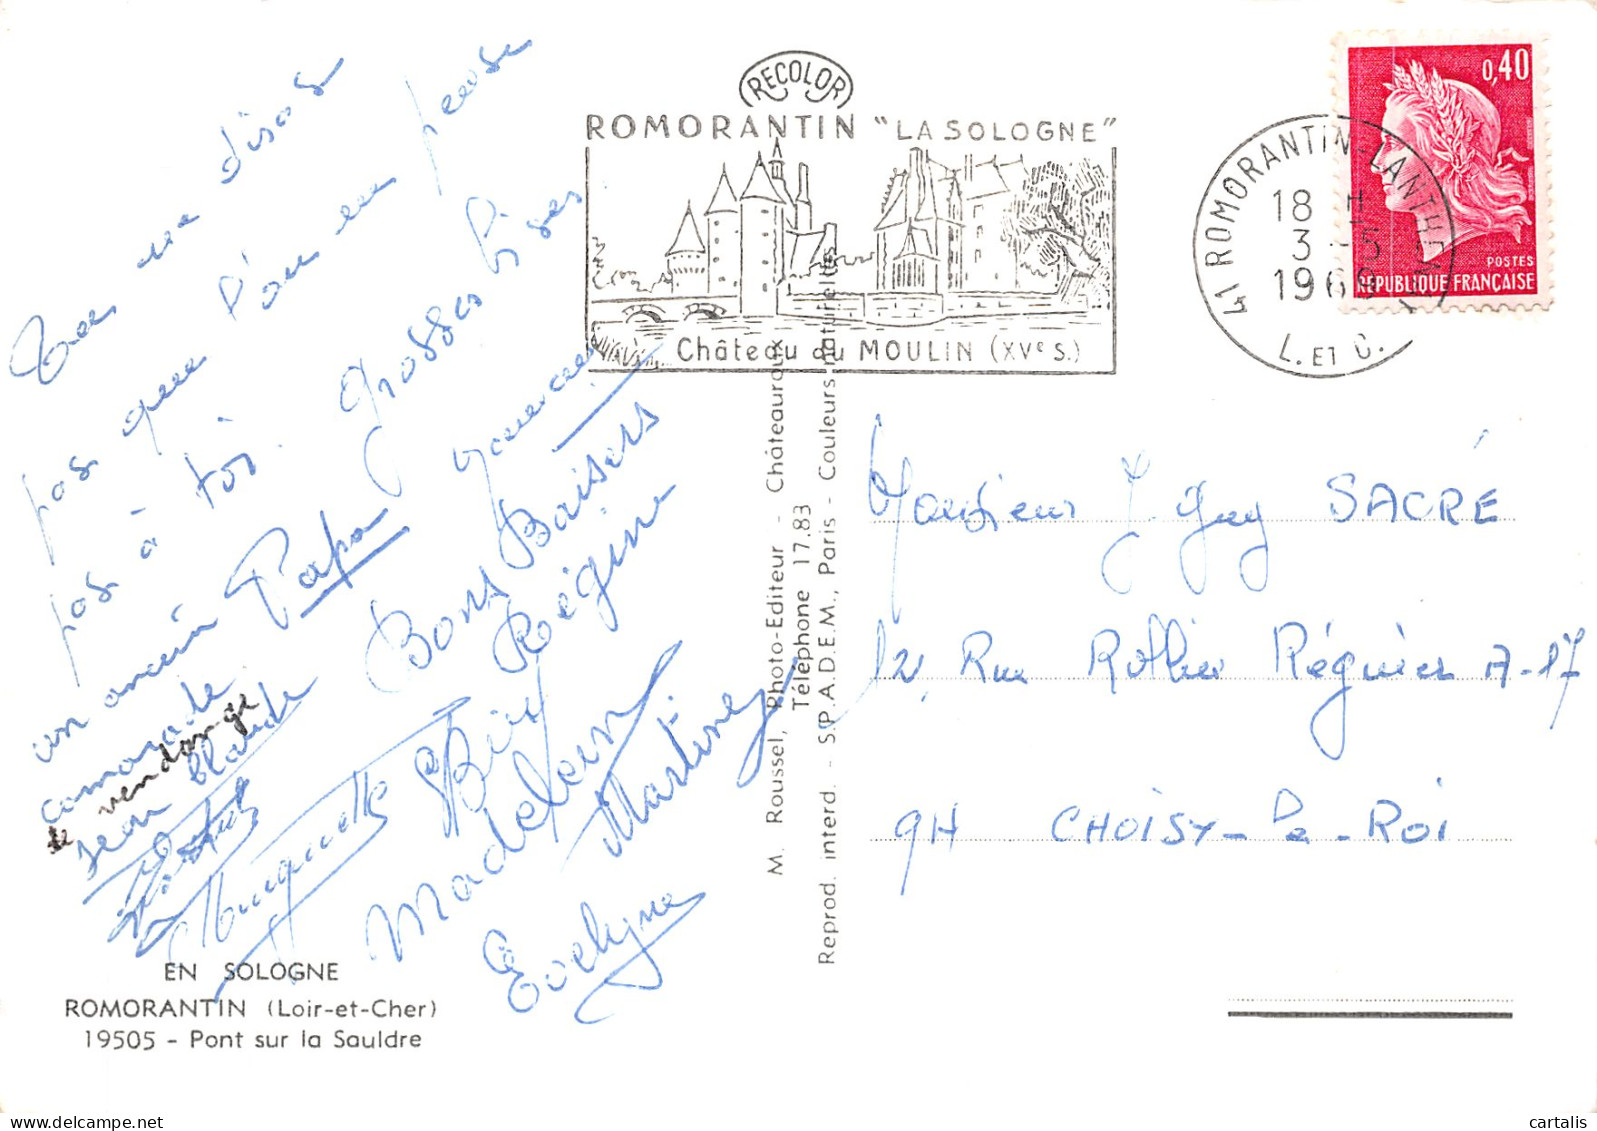 Tu ne diras
pas que l'on ne pense
pas à toi. Grosses bises
un ancien Papa
camarade
de vendange
Jean Claude
Bons Baisers
Régine
Huguette
Madeleine
Martine
Evelyne
EN SOLOGNE
ROMORANTIN (Loir-et-Cher)
19505 - Pont sur la Sauldre
RECOLOR
ROMORANTIN "LA SOLOGNE"
Château du MOULIN (XVe S.)
M. Roussel, Photo-Editeur - Châteauroux
Téléphone 17.83
Reprod. interd. - S.P.A.D.E.M., Paris - Couleurs naturelles
41 ROMORANTIN-LANTHENAY
18 H
3 - 5
1969
L. ET C.
0,40
POSTES
REPUBLIQUE FRANÇAISE
Monsieur J. Guy SACRÉ
12, Rue Rollin Régnier A-17
94 CHOISY-le-ROI
cartalis